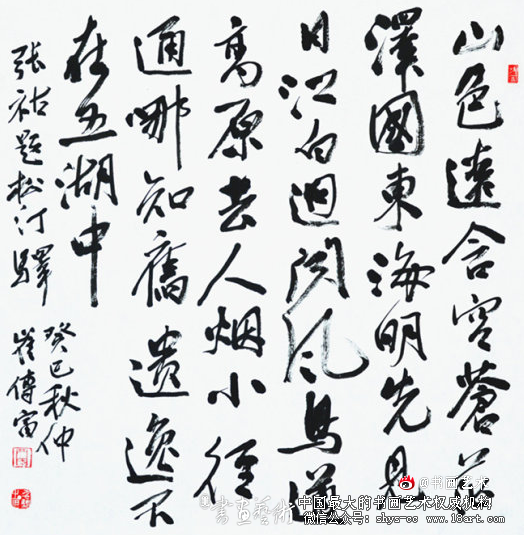 山色遠含空蒼茫
澤國東海明先見
日江白迥闻风鸟道
高原去人烟小径
通哪知舊遺逸不
在五湖中
张祜题松汀驛
癸巳秋仲
崔傳富
@书画艺术
中国最大的书画艺术权威机构
微信公众号：shys-cc www.18art.com